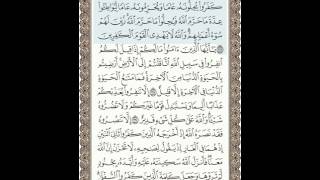 كَفَرُوا۟ يُحِلُّونَهُۥ عَامًا وَيُحَرِّمُونَهُۥ عَامًا لِّيُوَاطِـُٔوا۟
عِدَّةَ مَا حَرَّمَ ٱللَّهُ فَيُحِلُّوا۟ مَا حَرَّمَ ٱللَّهُ زُيِّنَ لَهُمْ
سُوٓءُ أَعْمَٰلِهِمْ وَٱللَّهُ لَا يَهْدِى ٱلْقَوْمَ ٱلْكَٰفِرِينَ
يَٰٓأَيُّهَا ٱلَّذِينَ ءَامَنُوا۟ مَا لَكُمْ إِذَا قِيلَ لَكُمُ
ٱنفِرُوا۟ فِى سَبِيلِ ٱللَّهِ ٱثَّاقَلْتُمْ إِلَى ٱلْأَرْضِ أَرَضِيتُم
بِٱلْحَيَوٰةِ ٱلدُّنْيَا مِنَ ٱلْأَخِرَةِ فَمَا مَتَٰعُ ٱلْحَيَوٰةِ
ٱلدُّنْيَا فِى ٱلْأَخِرَةِ إِلَّا قَلِيلٌ ٣٨ إِلَّا تَنفِرُوا۟ يُعَذِّبْكُمْ
عَذَابًا أَلِيمًا وَيَسْتَبْدِلْ قَوْمًا غَيْرَكُمْ وَلَا تَضُرُّوهُ
شَيْـًٔا وَٱللَّهُ عَلَىٰ كُلِّ شَىْءٍ قَدِيرٌ ٣٩ إِلَّا تَنصُرُوهُ
فَقَدْ نَصَرَهُ ٱللَّهُ إِذْ أَخْرَجَهُ ٱلَّذِينَ كَفَرُوا۟ ثَانِىَ ٱثْنَيْنِ
إِذْ هُمَا فِى ٱلْغَارِ إِذْ يَقُولُ لِصَٰحِبِهِۦ لَا تَحْزَنْ إِنَّ ٱللَّهَ
مَعَنَا فَأَنزَلَ ٱللَّهُ سَكِينَتَهُۥ عَلَيْهِ وَأَيَّدَهُۥ بِجُنُودٍ
لَّمْ تَرَوْهَا وَجَعَلَ كَلِمَةَ ٱلَّذِينَ كَفَرُوا۟ ٱلسُّفْلَىٰ